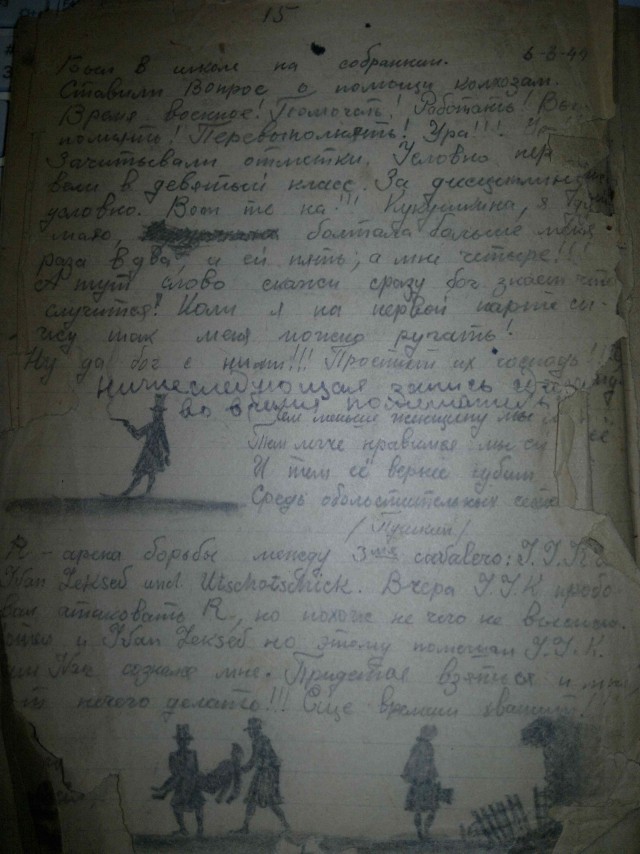 15
Был в школе на собрании. 6-3-44
Ставили вопрос о помощи колхозам.
Время военное! Помочать! Работать! Вы-
полнять! Перевыполнять! Ура!!!
Зачитывали отметки. Условно пер
вели в девятый класс. За дисциплину
условно. Вот те на!!! Кукушкина, я
маю, болтала больше меня
раза в два, и ей пять, а мне четыре!!!
А тут слово скажи сразу бог знает что
случится! Коли я на первой парте си-
жу так меня можно ругать!
Ну да бог с ними!!! Простит их господь!!
Нижеследующая запись
во время
Чем меньше женщину мы
Тем легче нравимся мы ей
И тем её вернее губим
Средь обольстительных сетей
/Пушкин/
R - арена борьбы между 3мя
Ivan Zeksed und Utschotschick. Вчера J.J.K пробо-
вал атаковать R, но похоже не чего не
и Ivan Zeksed но этому помощи J.J.K.
сознался мне. Придется взяться и мне
нечего делать!!! Еще времени хватит!